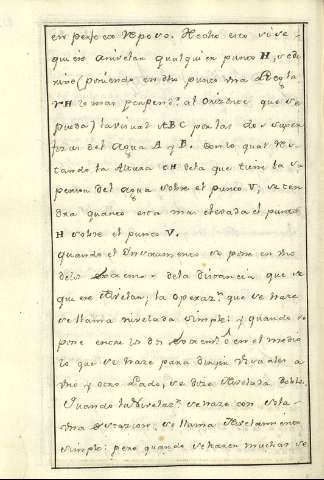 en perfecto Reposo. Hecho esto si se
quiere nivelar qualquier punto H, se di
rixe (poniendo en dho punto una Regla
rH lo mas perpend.r al Orizonte que se
pueda) la visual ABC por las dos super
ficies del Agua A y B. Con lo qual Res
tando la Altura CH dela que tiene la su
perficie del Agua sobre el punto V; se ten
dra quanto esta mas elevado el punto
H sobre el punto V.
Quando el Instrumento se pone en uno
delos Extremos dela distancia que se
quiere Nivelar; la Operaz.n que se haze
se llama nivelada simple: y quando se
pone entre los dos Extrem.s ô en el medio
lo que se haze para dirigir visuales a
uno y otro Lado, se dize Nivelada Doble.
Quando la Nivelaz.n se haze con sola
una estazion, se llama Nivelamiento
simple: pero quando se hazen muchas se